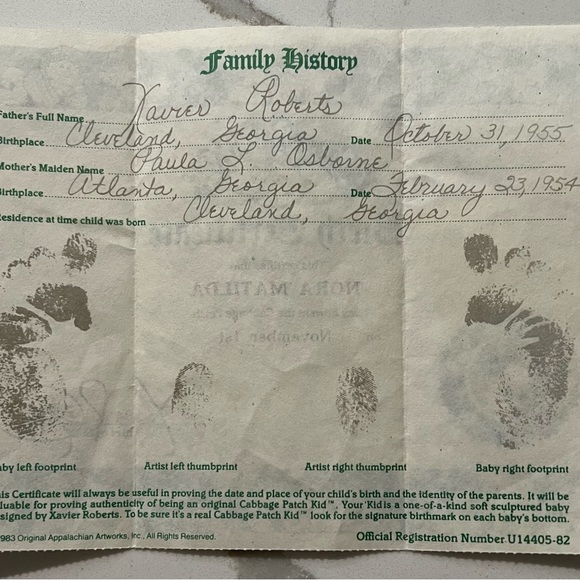 Family History
Father's Full Name Xavier Roberts
Birthplace Cleveland, Georgia Date October 31, 1955
Mother's Maiden Name Paula L. Osborne
Birthplace Atlanta, Georgia Date February 23, 1954
Residence at time child was born Cleveland, Georgia
NORA MATILDA
November 1st
aby left footprint Artist left thumbprint Artist right thumbprint Baby right footprint
is Certificate will always be useful in proving the date and place of your child's birth and the identity of the parents. It will be
luable for proving authenticity of being an original Cabbage Patch Kid™. Your 'Kid is a one-of-a-kind soft sculptured baby
signed by Xavier Roberts. To be sure it's a real Cabbage Patch Kid™ look for the signature birthmark on each baby's bottom.
983 Original Appalachian Artworks, Inc., All Rights Reserved. Official Registration Number U14405-82